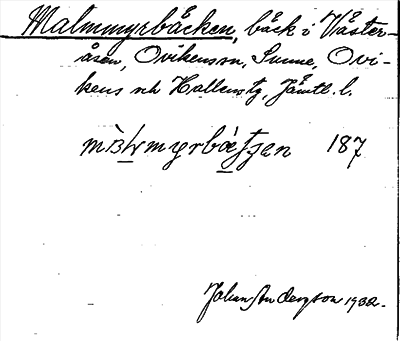 Malmmyrbäcken, bäck i Väster-
åsen, Ovikens sn, Sunne, Ovi-
kens och Hallens tg, Jämtl. l.
187
Johan Anderzson 1932.